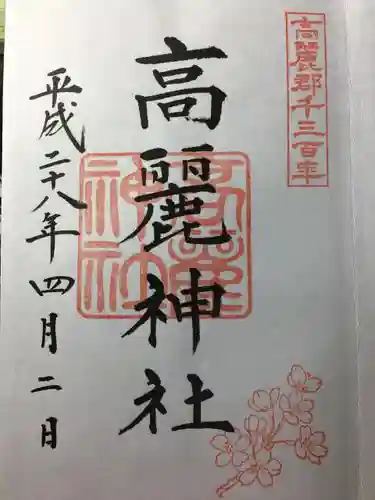 高麗郡千三百年
高麗神社
平成二十八年四月二日
高麗神社